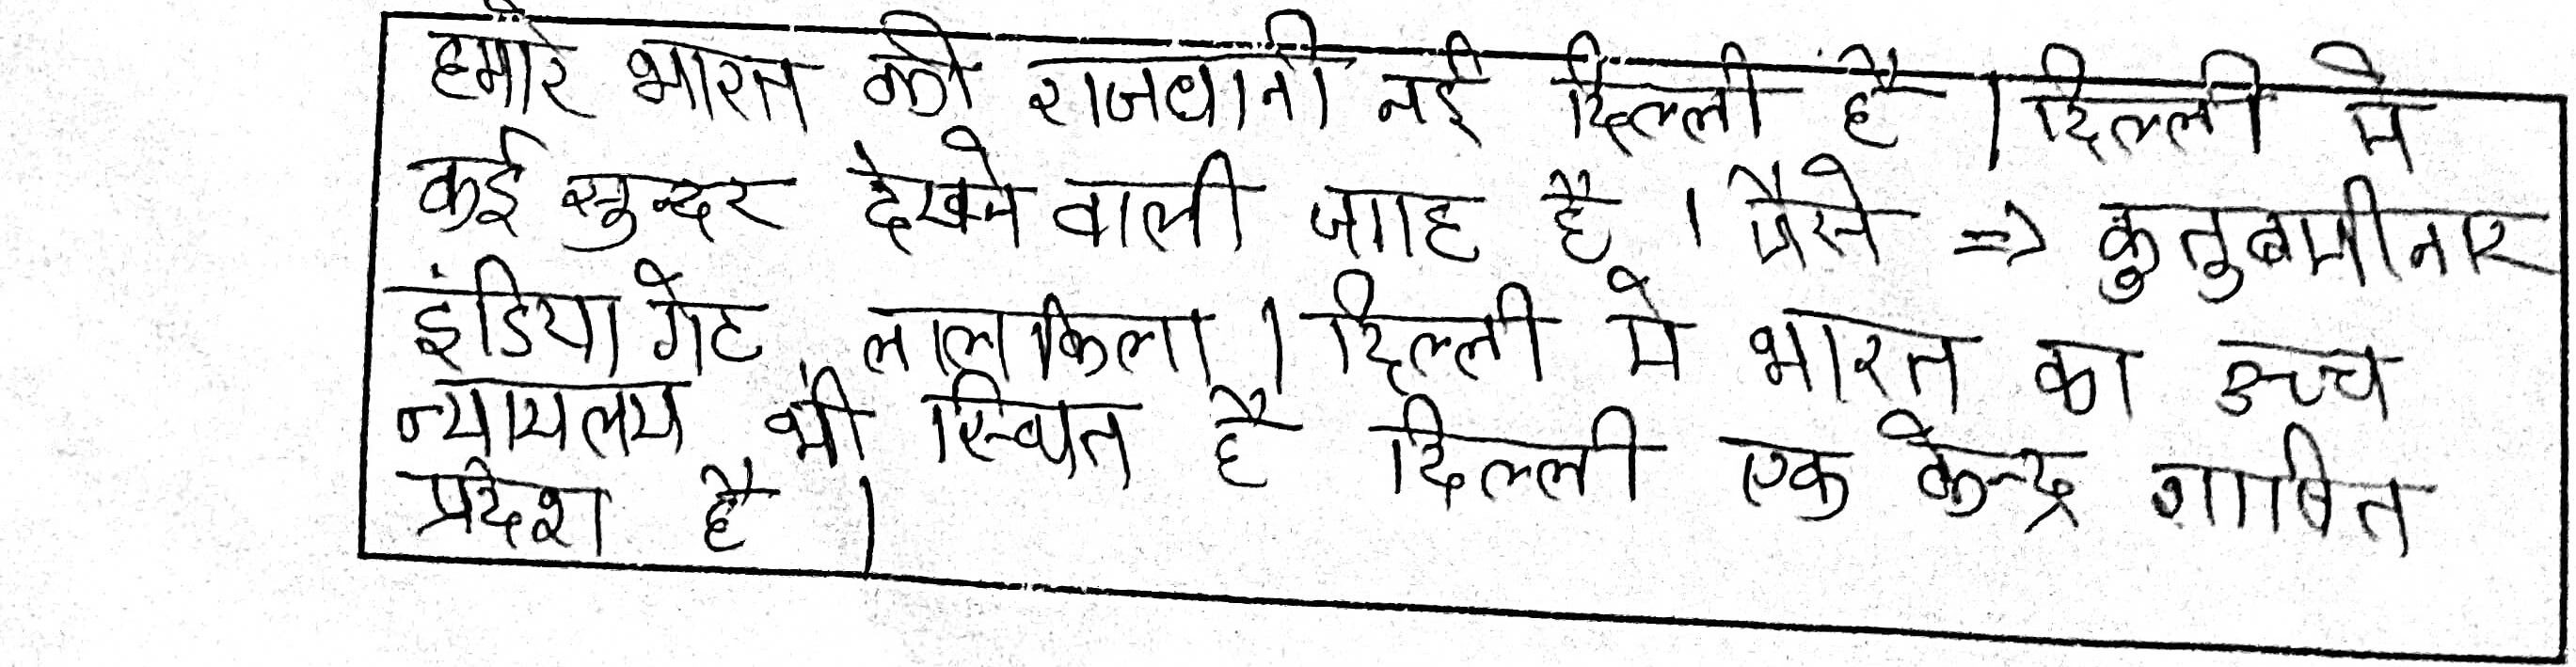 हमारे भारत की राजधानी नई दिल्ली है । दिल्ली मे
कई सुन्दर देखने वाली जगह है । जैसे => कुतुबमीनार
इंडिया गेट, लालकिला । दिल्ली मे भारत का उच्च
न्यायलय भी स्थित है दिल्ली एक केन्द्र शाषित
प्रदेश है ।